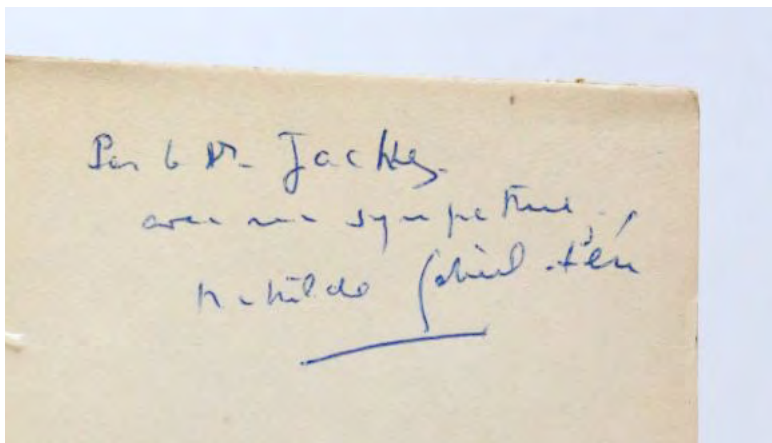 Pour le Dr. Jackey.
avec ma sympathie,
Mathilde Gabriel-Péri